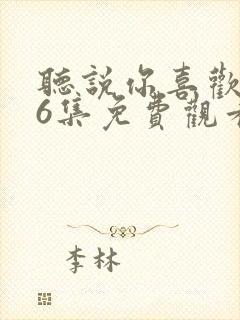 聽說你喜歡
6集免費觀看
李林